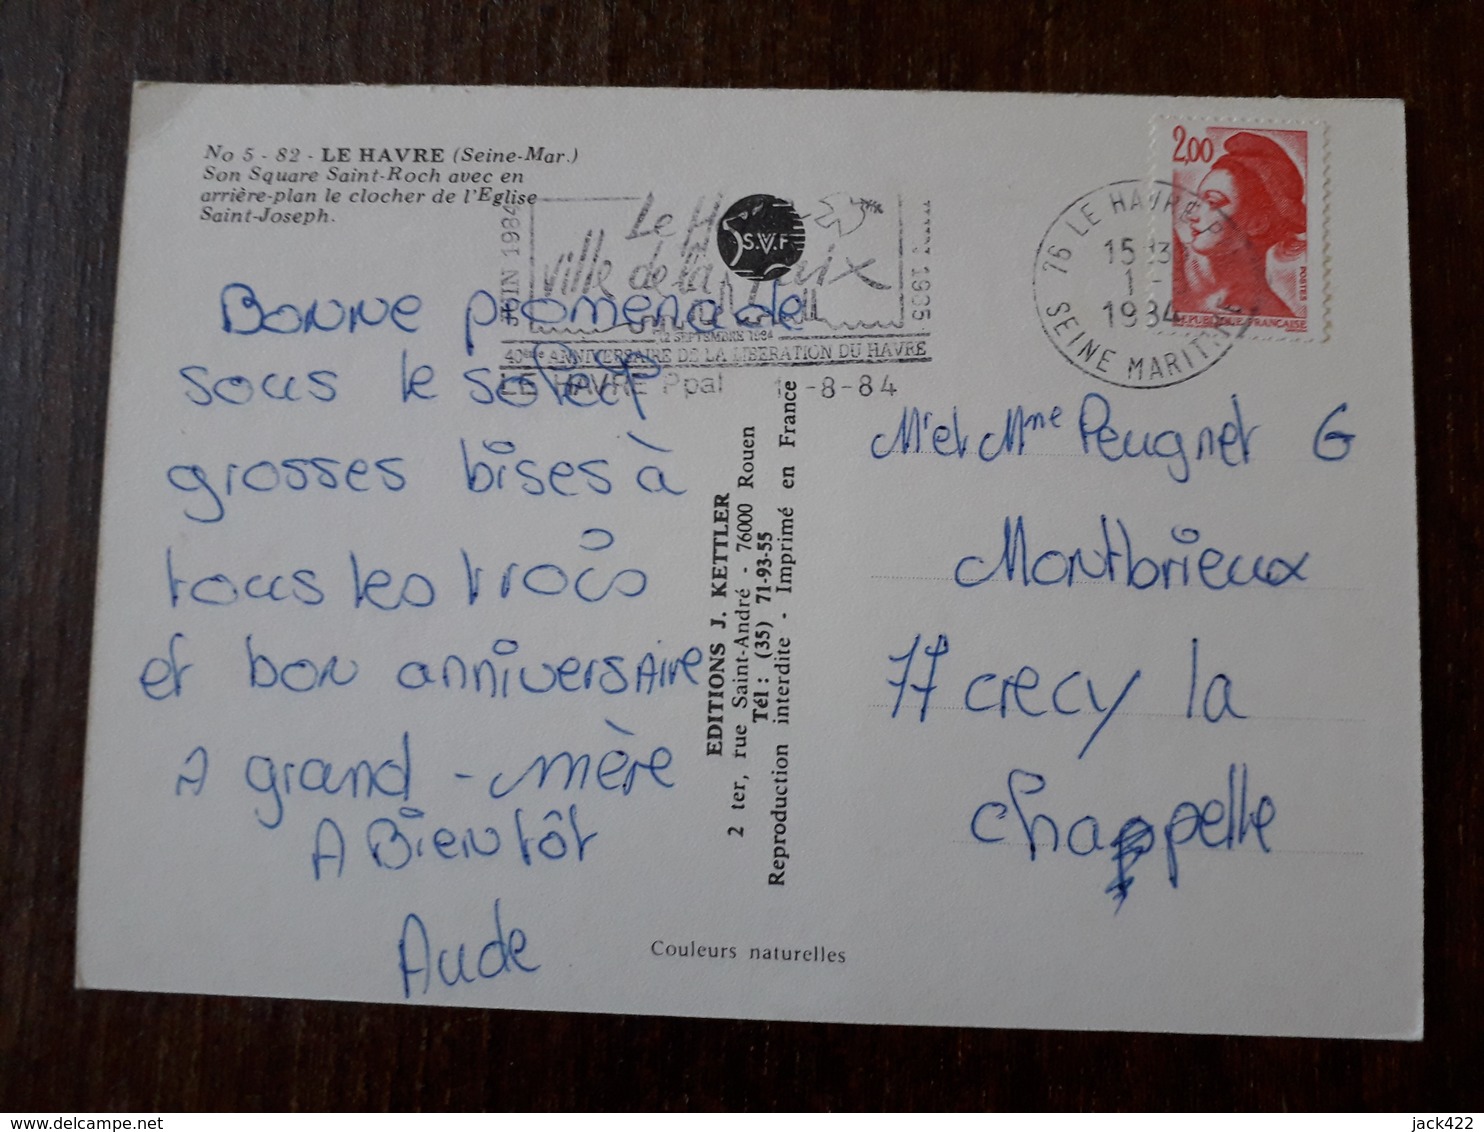 No 5 - 82 - LE HAVRE (Seine-Mar.)
Son Square Saint-Roch avec en
arrière-plan le clocher de l'Eglise
Saint-Joseph.
JUIN 1984
Le
ville de la paix
1985
S.V.F
12 SEPTEMBRE 1984
40ème ANNIVERSAIRE DE LA LIBERATION DU HAVRE
LE HAVRE Ppal
-8-84
76 LE HAVRE
15
1
1984
SEINE MARITIME
2,00
POSTES
REPUBLIQUE FRANCAISE
Bonne promenade
sous le soleil
grosses bises à
tous les trois
et bon anniversaire
A grand-mère
A Bientôt
Aude
EDITIONS J. KETTLER
2 ter, rue Saint-André - 76000 Rouen
Tél : (35) 71-93-55
Reproduction interdite - Imprimé en France
Mr et Mme Peugnet G
Montbrieux
77 crecy la
chappelle
Couleurs naturelles
delcampe.net
jack422